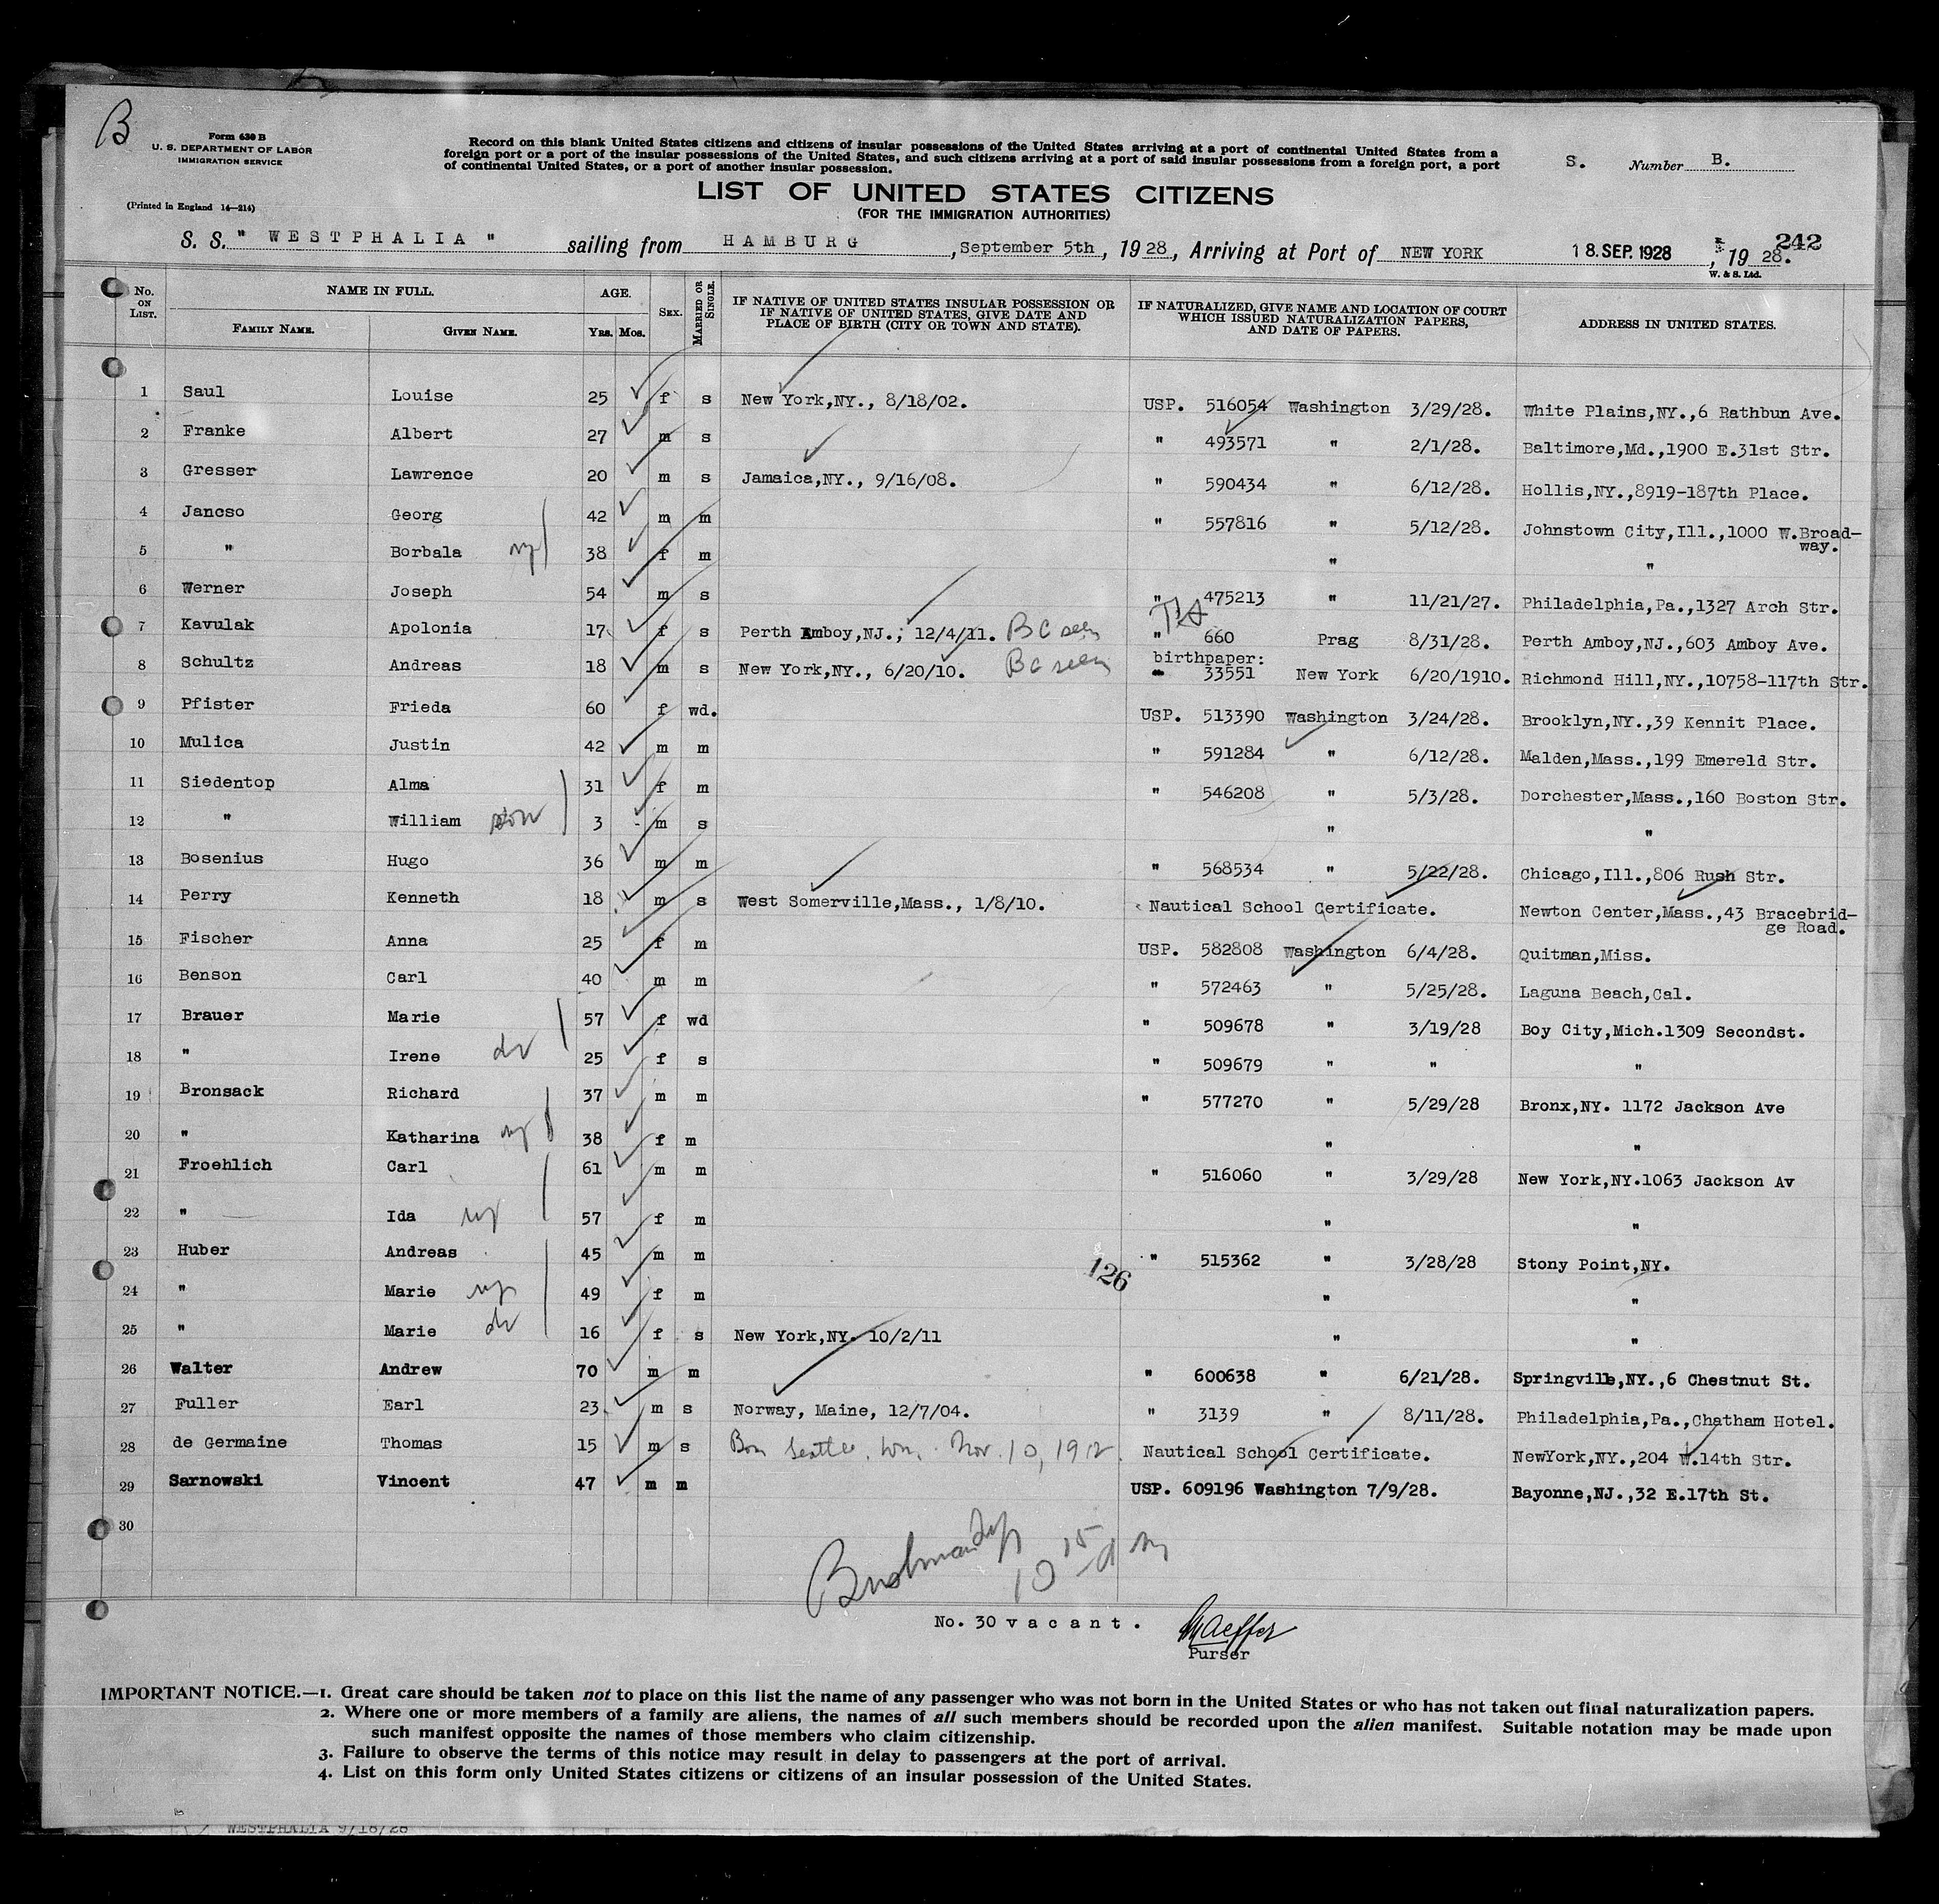 B
Form 630 B
U. S. DEPARTMENT OF LABOR
IMMIGRATION SERVICE
(Printed in England 14—214)
Record on this blank United States citizens and citizens of insular possessions of the United States arriving at a port of continental United States from a
foreign port or a port of the insular possessions of the United States, and such citizens arriving at a port of said insular possessions from a foreign port, a port
of continental United States, or a port of another insular possession.
S. Number B.
LIST OF UNITED STATES CITIZENS
(FOR THE IMMIGRATION AUTHORITIES)
S. S. " WESTPHALIA " sailing from HAMBURG, September 5th, 1928, Arriving at Port of NEW YORK 18.SEP.1928, 1928. 242
W. & S. Ltd.
No. ON LIST. NAME IN FULL. FAMILY NAME. GIVEN NAME. AGE. YRS. MOS. SEX. MARRIED OR SINGLE. IF NATIVE OF UNITED STATES INSULAR POSSESSION OR IF NATIVE OF UNITED STATES, GIVE DATE AND PLACE OF BIRTH (CITY OR TOWN AND STATE). IF NATURALIZED, GIVE NAME AND LOCATION OF COURT WHICH ISSUED NATURALIZATION PAPERS, AND DATE OF PAPERS. ADDRESS IN UNITED STATES.
1 Saul Louise 25 f s New York,NY., 8/18/02. USP. 516054 Washington 3/29/28. White Plains,NY.,6 Rathbun Ave.
2 Franke Albert 27 m s " 493571 " 2/1/28. Baltimore,Md.,1900 E.31st Str.
3 Gresser Lawrence 20 m s Jamaica,NY., 9/16/08. " 590434 " 6/12/28. Hollis,NY.,8919-187th Place.
4 Jancso Georg 42 m m " 557816 " 5/12/28. Johnstown City,Ill.,1000 W.Broad-
way.
5 " Borbala 38 f m " "
6 Werner Joseph 54 m s " 475213 " 11/21/27. Philadelphia,Pa.,1327 Arch Str.
7 Kavulak Apolonia 17 f s Perth Amboy,NJ.; 12/4/11. BC seen " 660 Prag 8/31/28. Perth Amboy,NJ.,603 Amboy Ave.
birthpaper:
8 Schultz Andreas 18 m s New York,NY., 6/20/10. BC seen 33551 New York 6/20/1910. Richmond Hill,NY.,10758-117th Str.
9 Pfister Frieda 60 f wd. USP. 513390 Washington 3/24/28. Brooklyn,NY.,39 Kennit Place.
10 Mulica Justin 42 m m " 591284 " 6/12/28. Malden,Mass.,199 Emereld Str.
11 Siedentop Alma 31 f m " 546208 " 5/3/28. Dorchester,Mass.,160 Boston Str.
12 " William son 3 m s " "
13 Bosenius Hugo 36 m m " 568534 " 5/22/28. Chicago,Ill.,806 Rush Str.
14 Perry Kenneth 18 m s West Somerville,Mass., 1/8/10. Nautical School Certificate. Newton Center,Mass.,43 Bracebrid-
ge Road.
15 Fischer Anna 25 f m USP. 582808 Washington 6/4/28. Quitman,Miss.
16 Benson Carl 40 m m " 572463 " 5/25/28. Laguna Beach,Cal.
17 Brauer Marie 57 f wd " 509678 " 3/19/28 Boy City,Mich.1309 Secondst.
18 " Irene 25 f s " 509679 " " "
19 Bronsack Richard 37 m m " 577270 " 5/29/28 Bronx,NY. 1172 Jackson Ave
20 " Katharina 38 f m " "
21 Froehlich Carl 61 m m " 516060 " 3/29/28 New York,NY.1063 Jackson Av
22 " Ida 57 f m " "
23 Huber Andreas 45 m m " 515362 " 3/28/28 Stony Point,NY.
126
24 " Marie 49 f m " "
25 " Marie 16 f s New York,NY. 10/2/11 " "
26 Walter Andrew 70 m m " 600638 " 6/21/28. Springville,NY.,6 Chestnut St.
27 Fuller Earl 23 m s Norway, Maine, 12/7/04. " 3139 " 8/11/28. Philadelphia,Pa.,Chatham Hotel.
28 de Germaine Thomas 15 m s Born Seattle, Wn. Nov. 10, 1912. Nautical School Certificate. NewYork,NY.,204 W.14th Str.
29 Sarnowski Vincent 47 m m USP. 609196 Washington 7/9/28. Bayonne,NJ.,32 E.17th St.
30
10 15 am
No. 30 vacant.
Purser
IMPORTANT NOTICE.—1. Great care should be taken not to place on this list the name of any passenger who was not born in the United States or who has not taken out final naturalization papers.
2. Where one or more members of a family are aliens, the names of all such members should be recorded upon the alien manifest. Suitable notation may be made upon
such manifest opposite the names of those members who claim citizenship.
3. Failure to observe the terms of this notice may result in delay to passengers at the port of arrival.
4. List on this form only United States citizens or citizens of an insular possession of the United States.
WESTPHALIA 9/18/28